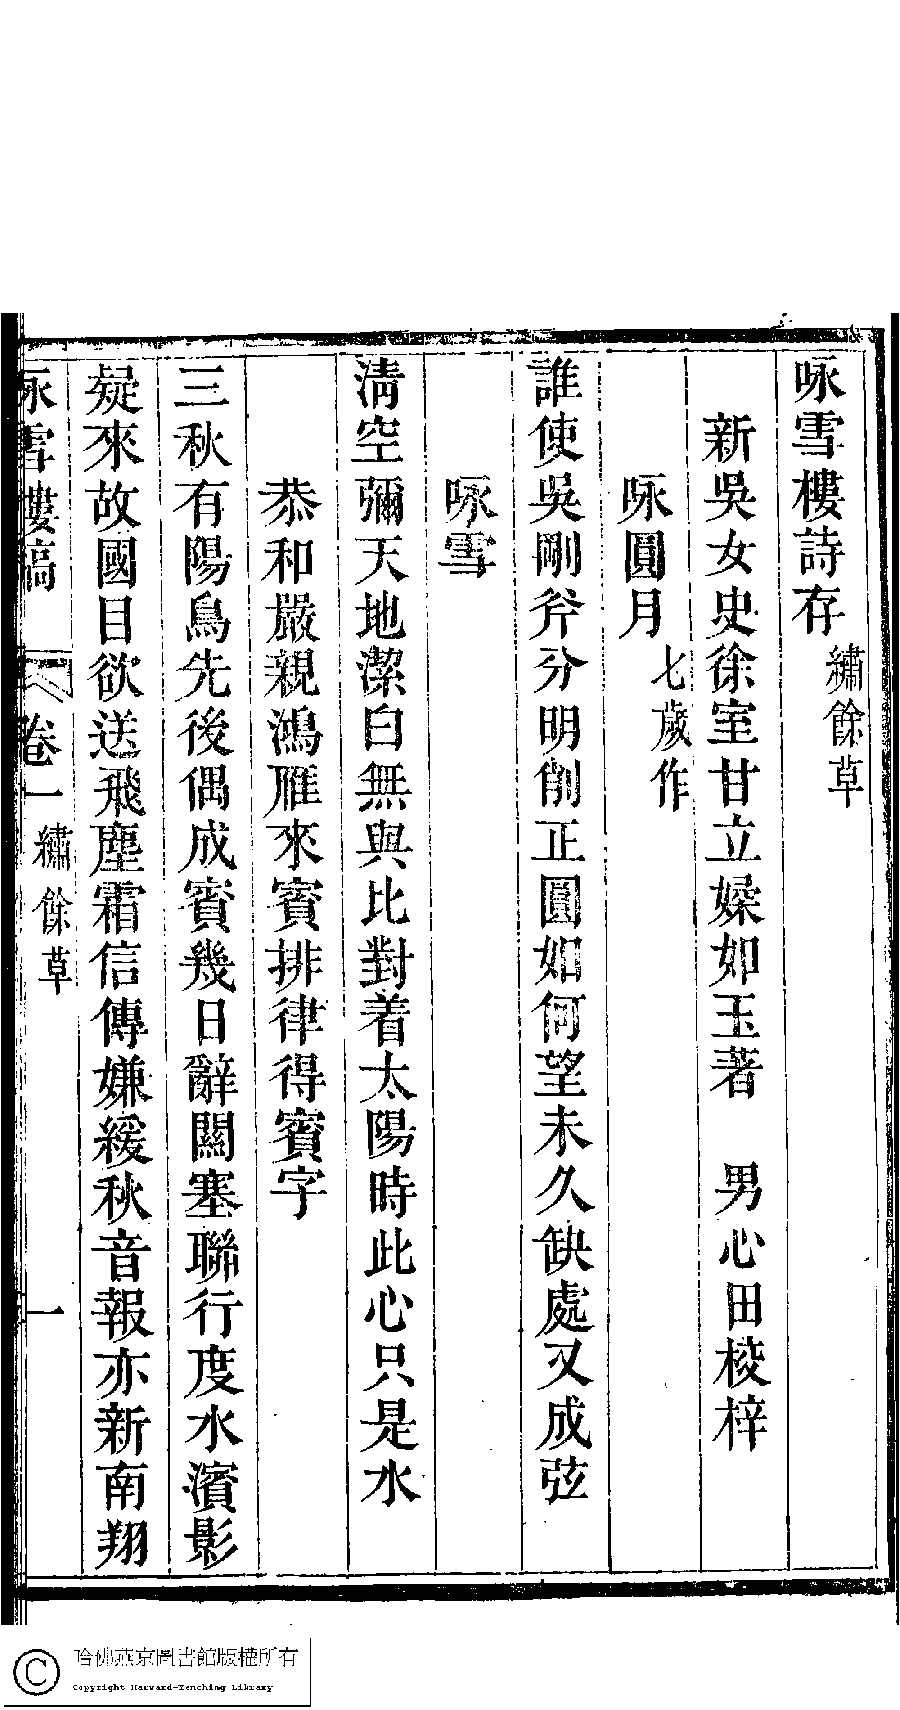 咏雪樓詩存 繡餘草
新吳女史徐室甘立媃如玉著 男心田校梓
咏圓月 七歲作
誰使吳剛斧分明削正圓如何望未久缺處又成弦
咏雪
淸空彌天地潔白無與比對着太陽時此心只是水
恭和嚴親鴻雁來賓排律得賓字
三秋有陽鳥先後偶成賓幾日辭關塞聯行度水濱影
疑來故國目欲送飛塵霜信傳嫌緩秋音報亦新南翔
咏雪樓稿 卷一 繡餘草 一
哈佛燕京圖書館版權所有
Copyright Harvard-Yenching Library